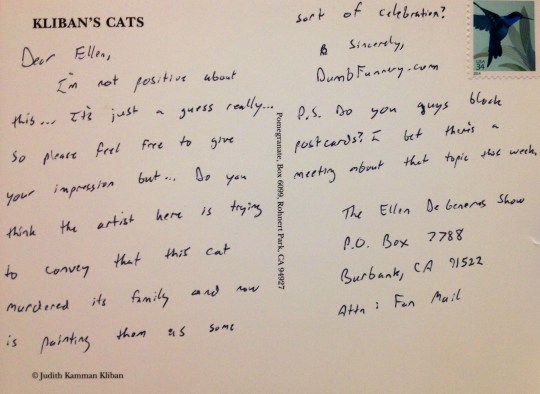 KLIBAN'S CATS
Dear Ellen,
I'm not positive about
this... It's just a guess really...
So please feel free to give
your impression but... Do you
think the artist here is trying
to convey that this cat
murdered its family and now
is painting them as some
© Judith Kamman Kliban
Pomegranate, Box 6099, Rohnert Park, CA 94927
sort of celebration?
Sincerely,
DumbFunnery.com
P.S. Do you guys block
postcards? I bet there's a
meeting about that topic this week.
The Ellen DeGeneres Show
P.O. Box 7788
Burbank, CA 91522
Attn: Fan Mail
USA
34